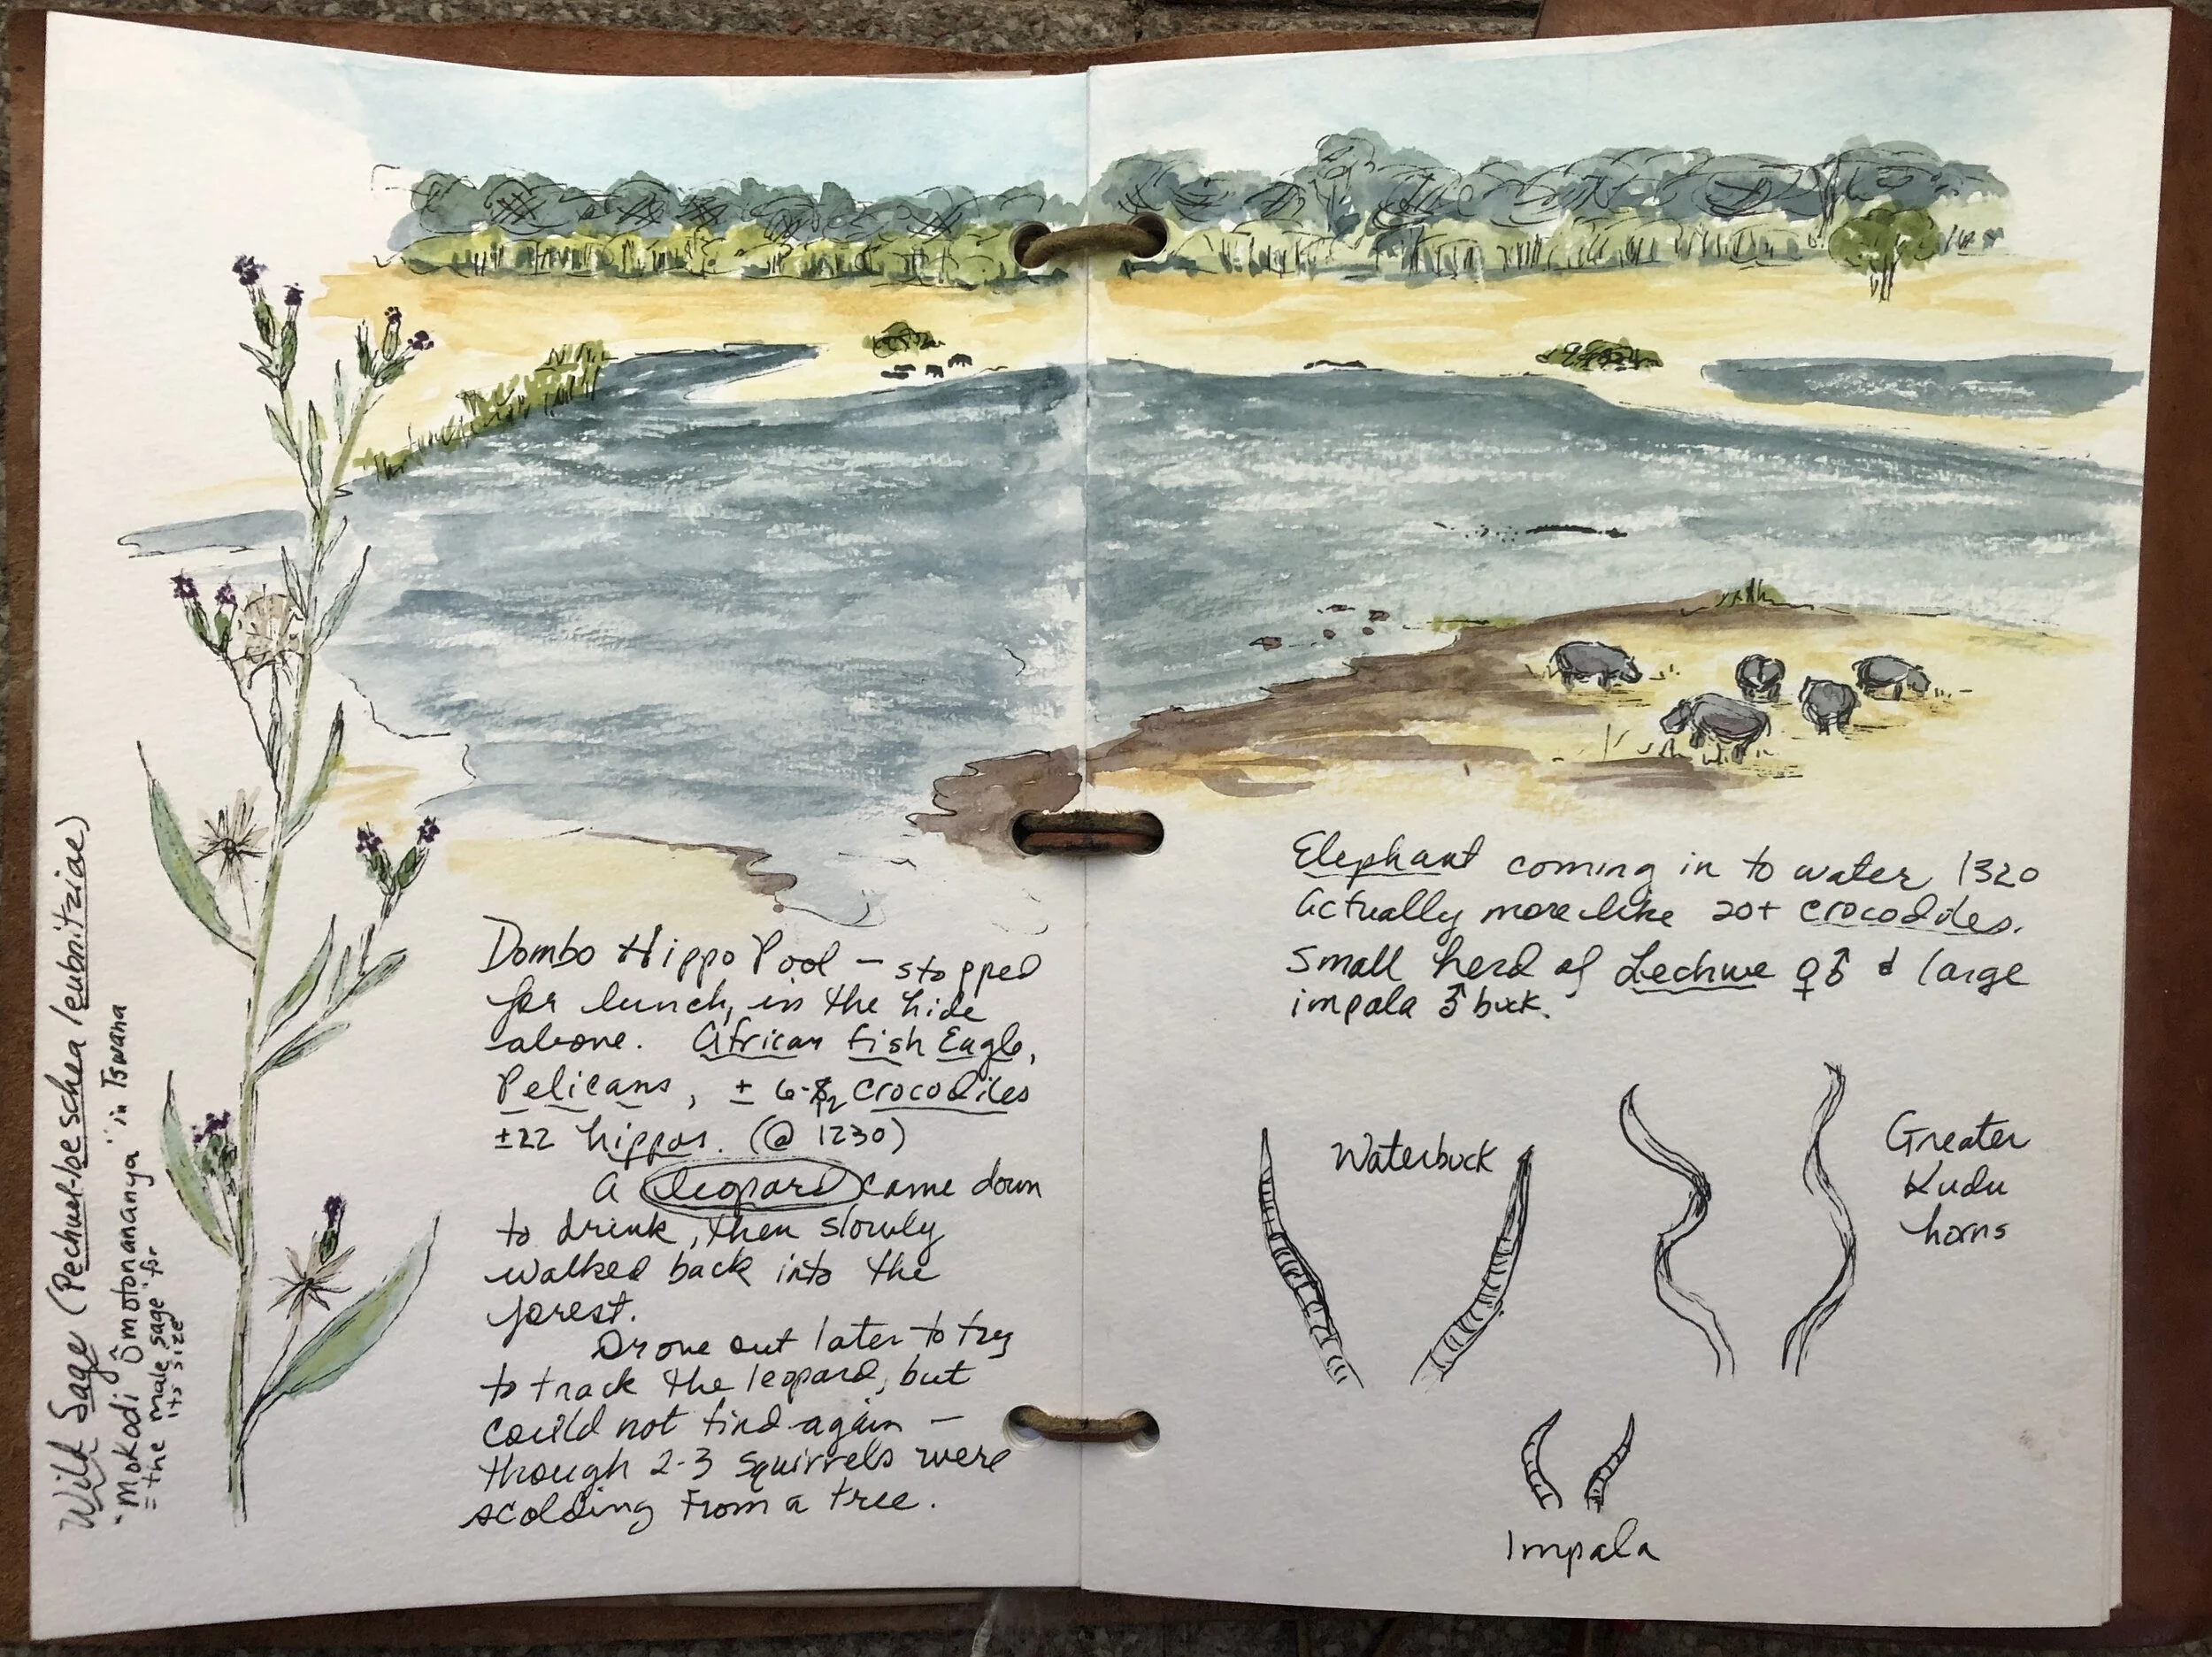 Wild Sage (Pechuel-loeschea leubnitziae)
"Mokodi Ômotonananya" in Tswana
= the male sage for
its size
Dombo Hippo Pool – stopped
for lunch, in the hide
above. African Fish Eagle,
Pelicans, ± 6- crocodiles
±22 hippos. (@ 1230)
A leopard came down
to drink, then slowly
walked back into the
forest.
Drove out later to try
to track the leopard, but
could not find again –
though 2-3 squirrels were
scolding from a tree.
Elephant coming in to water 1320
Actually more like 20+ crocodiles.
Small herd of Lechwe ♀♂ & large
impala ♂ buck.
Waterbuck
Greater
Kudu
horns
Impala